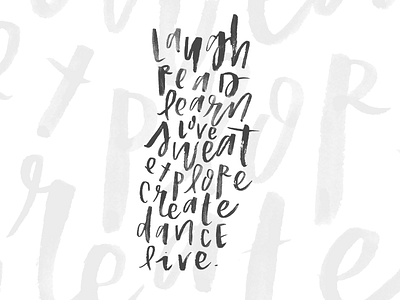 laugh
READ
learn
love
sweat
explore
create
dance
live.